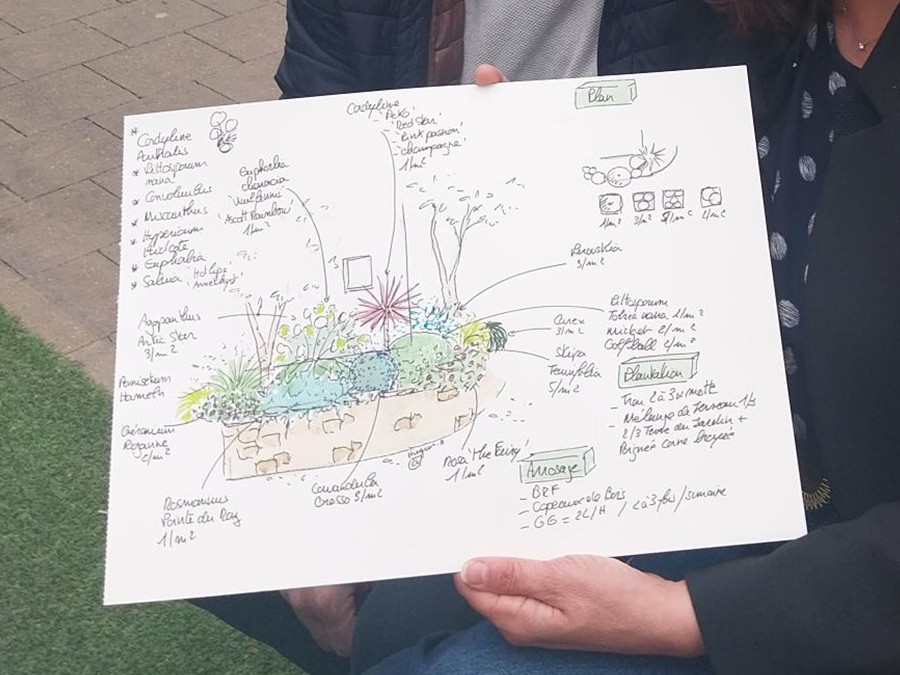 * Cordyline
Australis
* Pittosporum
nana
* Convolvulus
* Muscanthus
* Hypericum
Hidcote
* Euphorbia
* Salvia 'Hot lips'
'Amethyst'
Euphorbia
characia
'Wulfenii'
'Ascott Rainbow'
1/m²
Cordyline
'Peko'
- 'Red Star'
- 'Pink passion'
- 'champagne'
1/m²
Plan
1/m² 3/m² 5/m² 4/m²
Perovskia
3/m²
Agapanthus
Artic Star
3/m²
Pennisetum
Hameln
Géranium
Rozanne
Carex
3/m²
Stipa
Tenuifolia
5/m²
Pittosporum
Tobira nana 1/m²
Midget 2/m²
Golf Ball
Plantation
- Trou 2 à 3 x motte
- Mélange de Terreau 1/3
- 2/3 Terre du Jardin +
Poignée Corne broyée
Rosmarinus
Pointe du Raz
1/m²
Lavandula
Grosso 3/m²
Rosa 'The Fairy'
1/m²
Arrosage
- BRF
- Copeaux de Bois
- GG = 2L/H / 2 à 3 fois/semaine